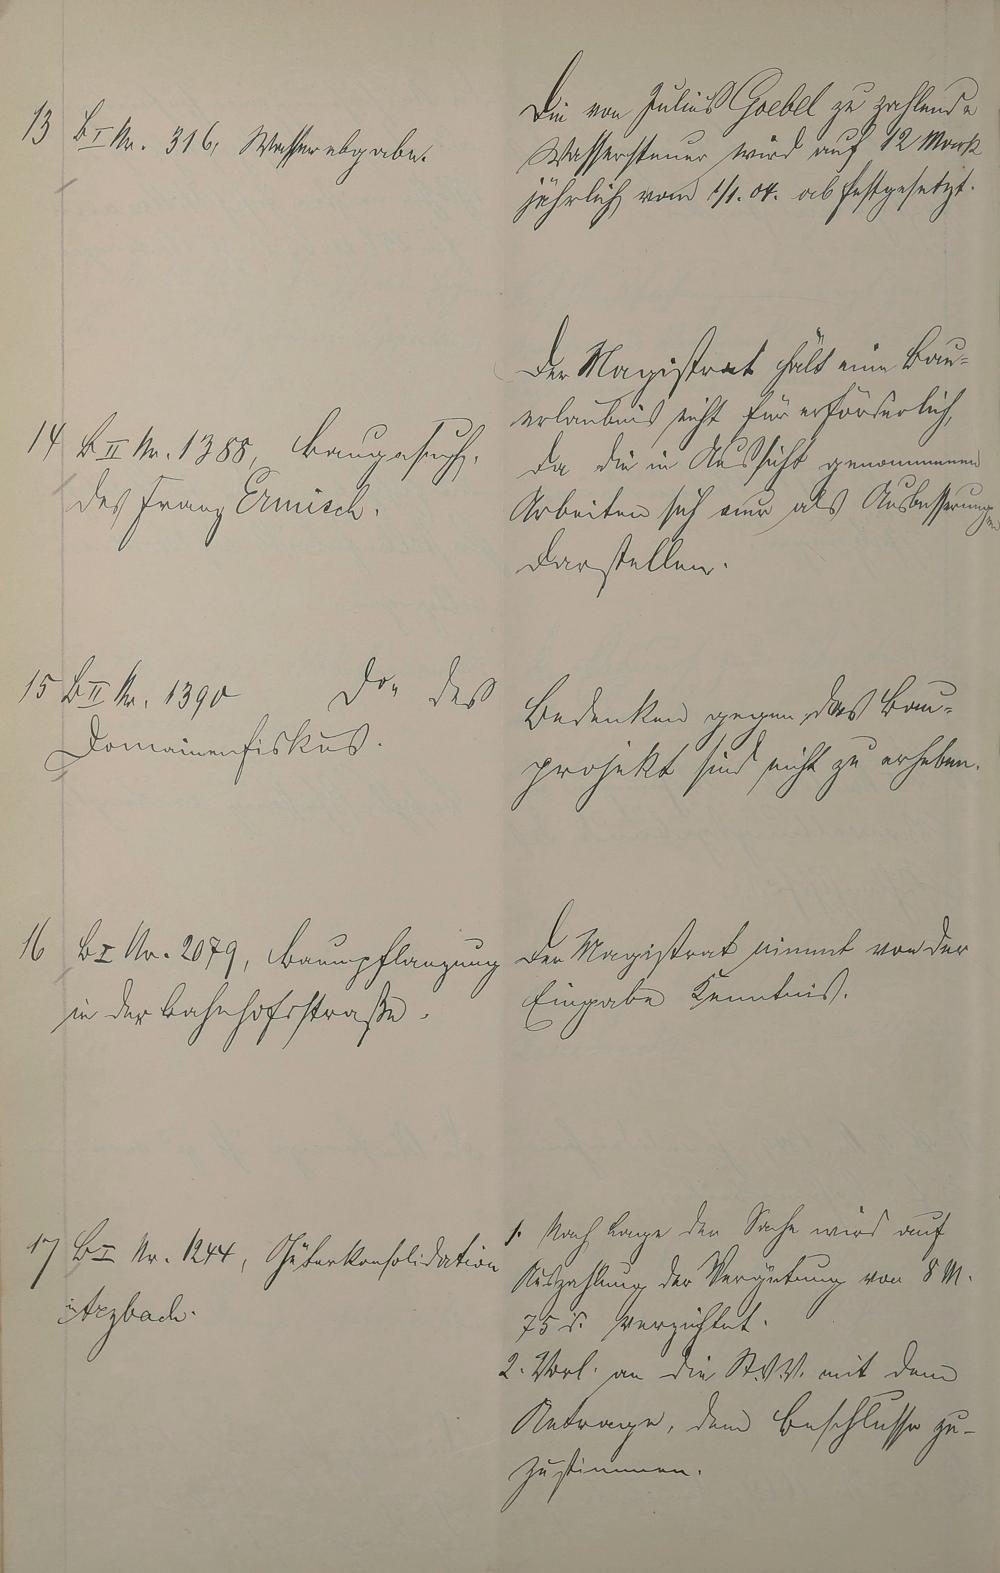 13 B I Nr. 316, Wasserabgabe.
Die von Julius Goebel zu zahlende
Wassersteuer wird auf 12 Mark
jährlich vom 1/1. 04. ab festgesetzt.
14 B II Nr. 1388, Baugesuch
des Franz Ermisch.
Der Magistrat hält eine Bau-
erlaubnis nicht für erforderlich,
da die in Aussicht genommenen
Arbeiten sich nur als Ausbesserungen
darstellen.
15 B II Nr. 1390 Do. des
Domainenfiskus.
Bedenken gegen das Bau-
projekt sind nicht zu erheben.
16 B I Nr. 2079, Baumpflanzung
in der Bahnhofsstraße.
Der Magistrat nimmt von der
Eingabe Kenntnis.
17 B I Nr. 1244, Güterkonsolidation
Arzbach.
1. Nach Lage der Sache wird auf
Auszahlung der Vergütung von 8 M.
75 d. verzichtet.
2. Vorl. an die St.V.V. mit dem
Antrage, dem Beschlusse zu-
zustimmen.